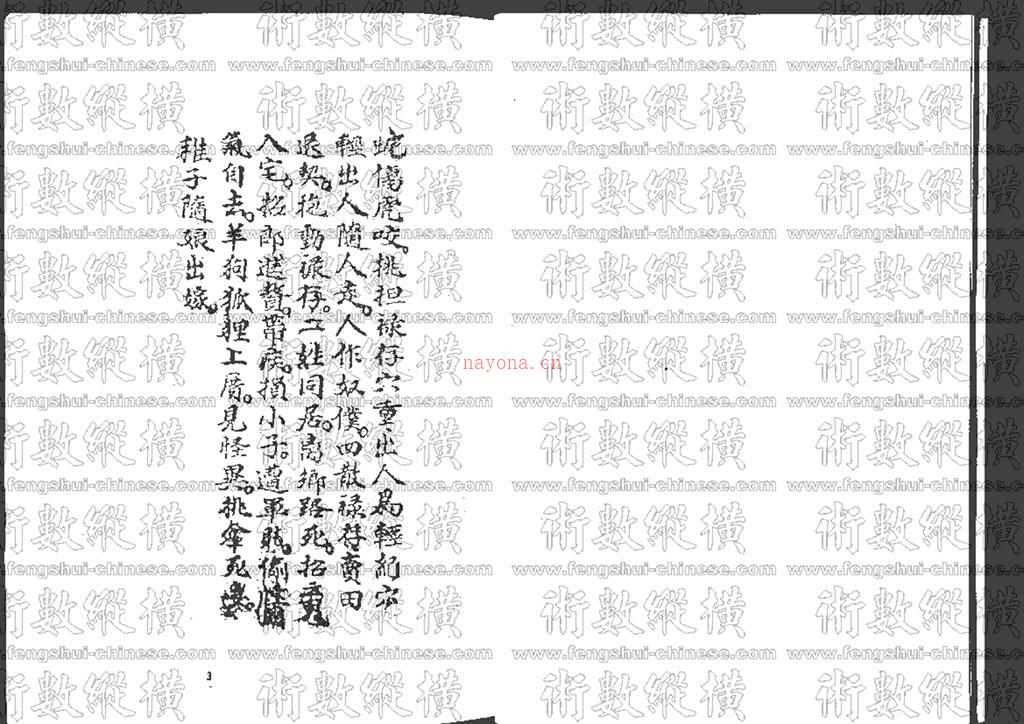 蛇傷虎咬。挑担祿存穴重出人為輕紀穴
輕出人隨人走。人作奴僕。四散祿存賣田
退契。抱動祿存。二姓同居。离鄉路死。招
入宅。招郎進贅。帶疾。損小子。遭軍賊。偷
氣自去。羊狗狐狸上屠。見怪異。挑傘死
雅子隨娘出嫁。
3
術數縱橫
www.fengshui-chinese.com
nayona.cn